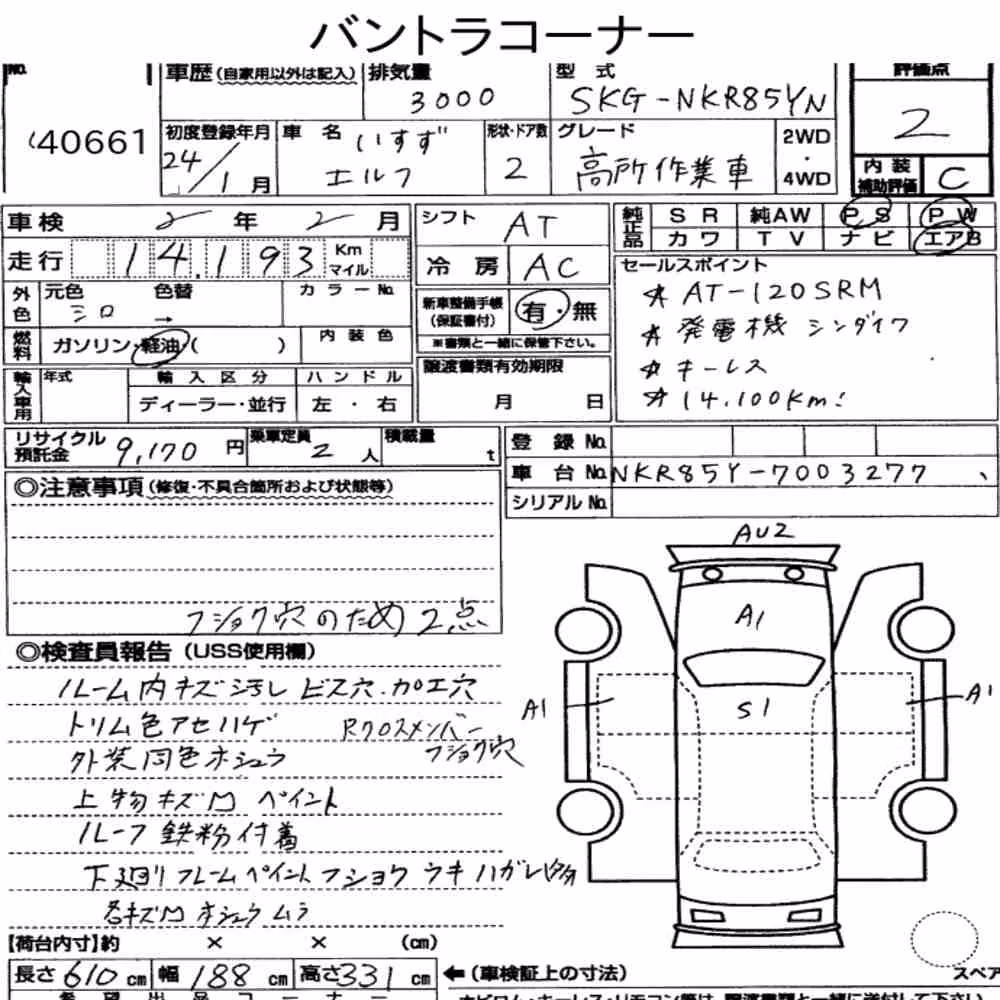 バントラコーナー
No.
車歴 (自家用以外は記入)
排気量
3000
型式
SKG-NKR85YN
評価点
2
40661
初度登録年月
24/1月
車名
いすず
エルフ
形状・ドア数
2
グレード
高所作業車
2WD
・
4WD
内装
補助評価
C
車検 2年2月
シフト
AT
純正品
SR 純AW PS PW
カワ TV ナビ エアB
走行 14.193 Km マイル
冷房 AC
セールスポイント
☆ AT-120SRM
☆ 発電機 シンダイワ
☆ キーレス
☆ 14.100Km!
外色
元色
シロ
色替
→
カラーNo.
新車整備手帳
(保証書付)
有・無
※書類と一緒に保管下さい。
燃料
ガソリン・軽油・( )
内装色
譲渡書類有効期限
月 日
輸入車用
年式
輸入区分
ディーラー・並行
ハンドル
左・右
リサイクル預託金 9,170円
乗車定員 2人
積載量 t
登録No.
車台No. NKR85Y-7003277
シリアルNo.
◎注意事項 (修復・不具合箇所および状態等)
フショク穴のため2点
◎検査員報告 (USS使用欄)
ルーム内キズ汚レ ビス穴.加工穴
トリム色アセハゲ Rクロスメンバー
フショク穴
外装同色ホシュウ
上物キズM ペイント
ルーフ鉄粉付着
下廻リフレームペイントフショクウキハガレ多
各キズMホシュウムラ
AU2
A1
A1
S1
A1
【荷台内寸】約 × × (cm)
長さ 610 cm 幅 188 cm 高さ 331 cm
←(車検証上の寸法)
スペア
希望出品コーナー